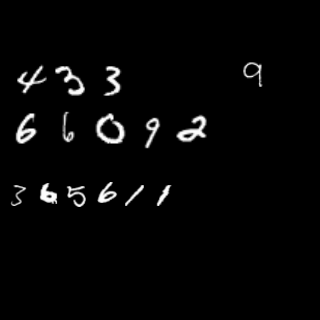 433 9
66092
365611